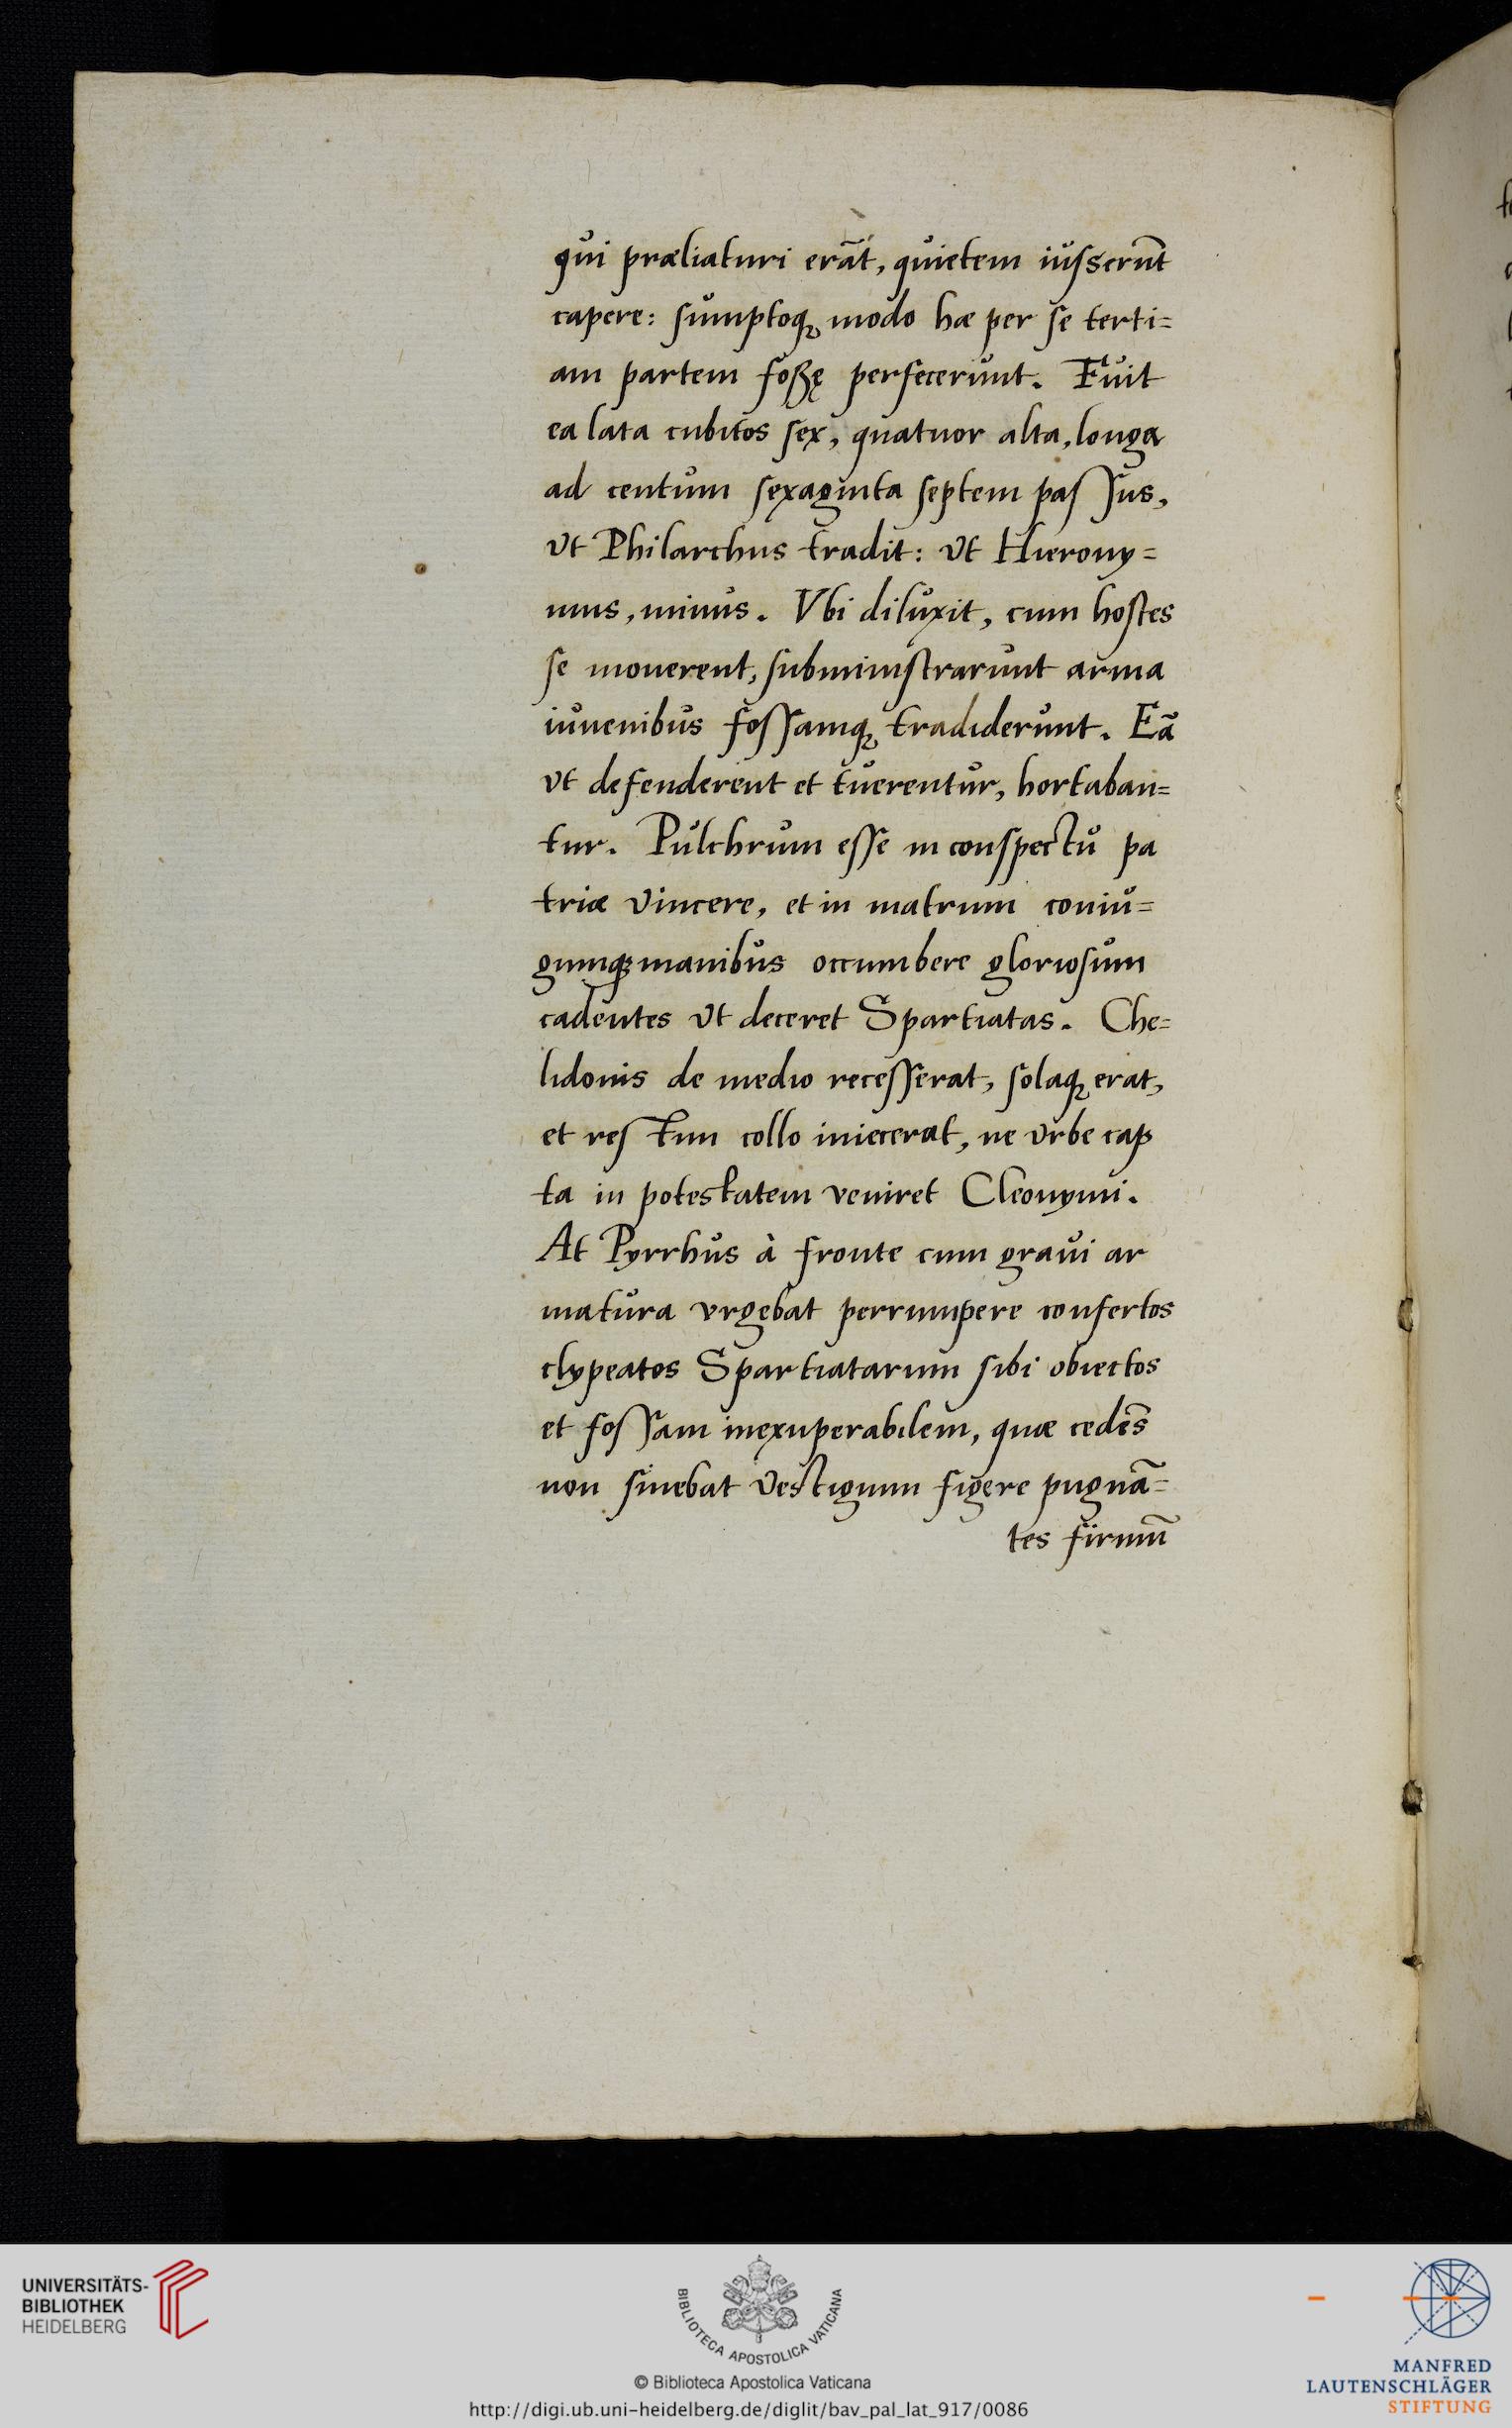 qui præliaturi erāt, quietem iusserūt
capere: sumptoq; modo hæ per se terti=
am partem foßę perfecerunt. Fuit
ea lata cubitos sex, quatuor alta, longa
ad centum sexaginta septem passus,
vt Philarchus tradit: vt Hierony=
mus, minus. Vbi diluxit, cum hostes
se mouerent, subministrarunt arma
iuuenibus fossamq; tradiderunt. Eā
vt defenderent et tuerentur, hortaban=
tur. Pulchrum esse in conspectu pa
triæ vincere, et in matrum coniu=
gumq; manibus occumbere gloriosum
cadentes vt deceret Spartiatas. Che=
lidonis de medio recesserat, solaq; erat,
et restim collo iniecerat, ne vrbe cap
ta in potestatem veniret Cleonymi.
At Pyrrhus à fronte cum graui ar
matura vrgebat perrumpere confertos
clypeatos Spartiatarum sibi obiectos
et fossam inexuperabilem, quæ cedēs
non sinebat vestigium figere pugnā=
tes firmū
UNIVERSITÄTS-
BIBLIOTHEK
HEIDELBERG
BIBLIOTECA APOSTOLICA VATICANA
© Biblioteca Apostolica Vaticana
http://digi.ub.uni-heidelberg.de/diglit/bav_pal_lat_917/0086
MANFRED
LAUTENSCHLÄGER
STIFTUNG